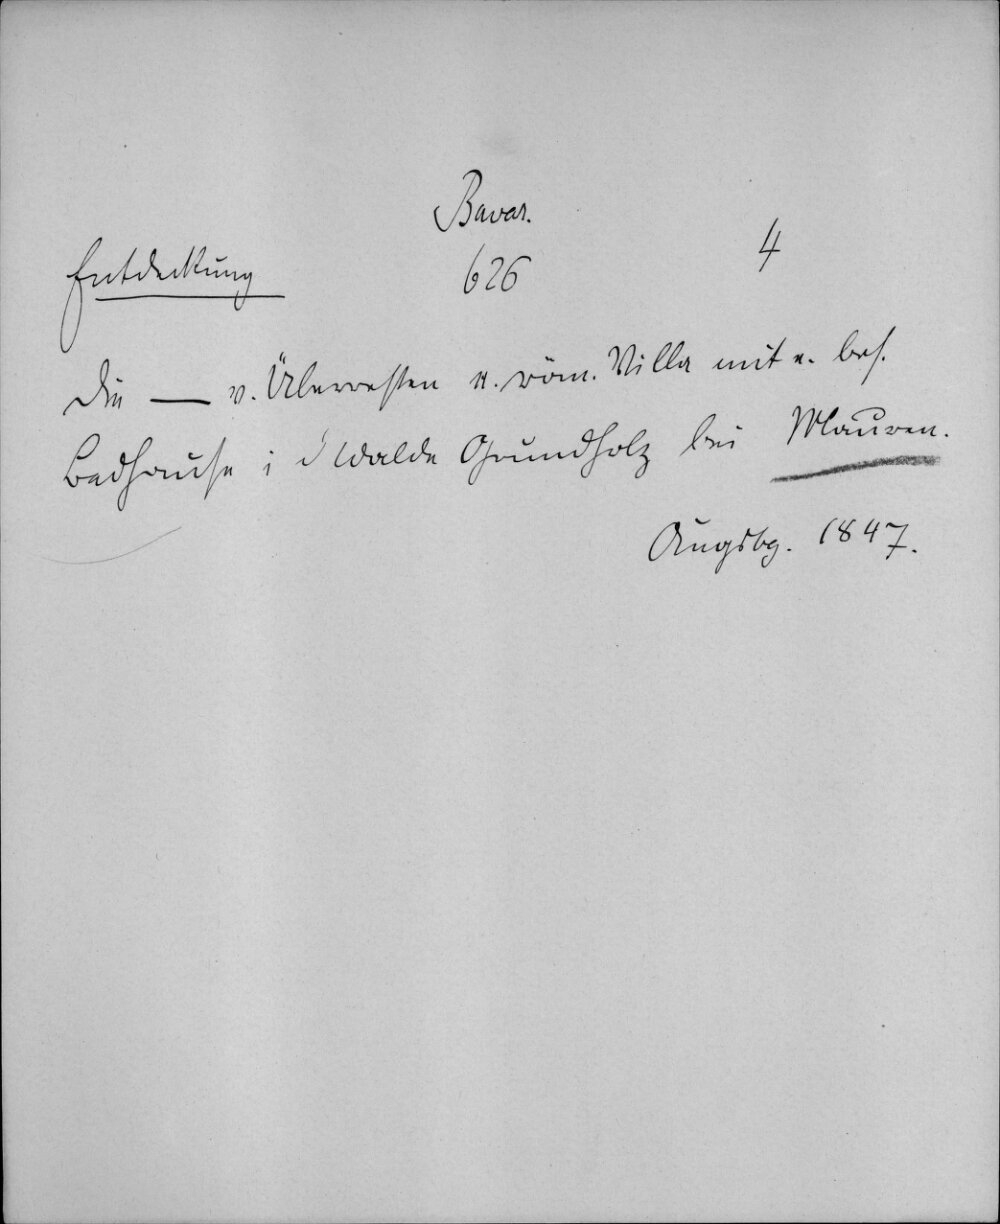 Bavar.
626
4
Entdeckung
Die — v. Überresten e. röm. Villa mit e. bes.
Badhause i d Walde Grundholz bei Mauren.
Augsbg. 1847.